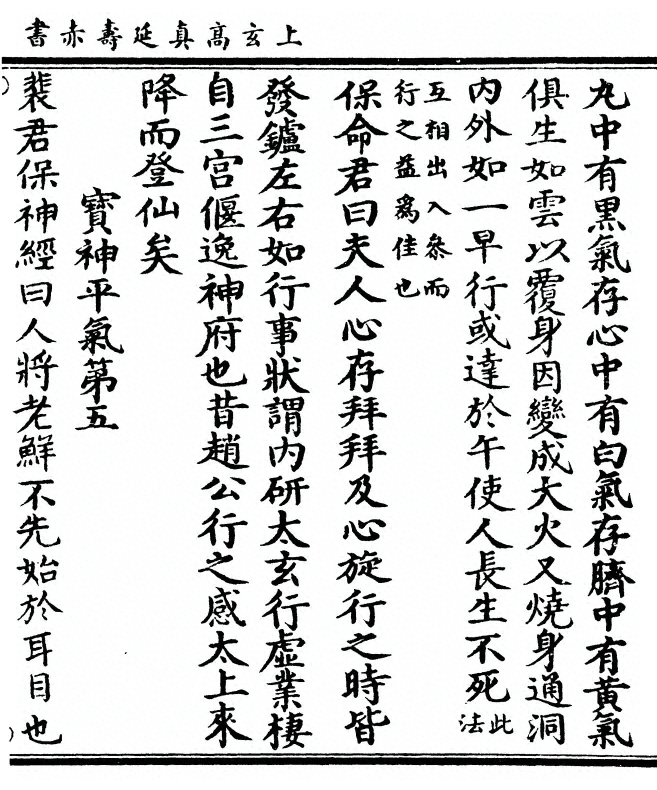 上玄高真延壽赤書
丸中有黒氣存心中有白氣存臍中有黃氣
俱生如雲以覆身因變成大火又燒身通洞
内外如一早行或達於午使人長生不死此法
互相出入叅而
行之益爲佳也
保命君曰夫人心存拜拜及心旋行之時皆
發鑪左右如行事狀謂内研太玄行虛業棲
自三宫偃逸神府也昔趙公行之感太上來
降而登仙矣
寶神平氣第五
裴君保神經曰人將老鮮不先始於耳目也